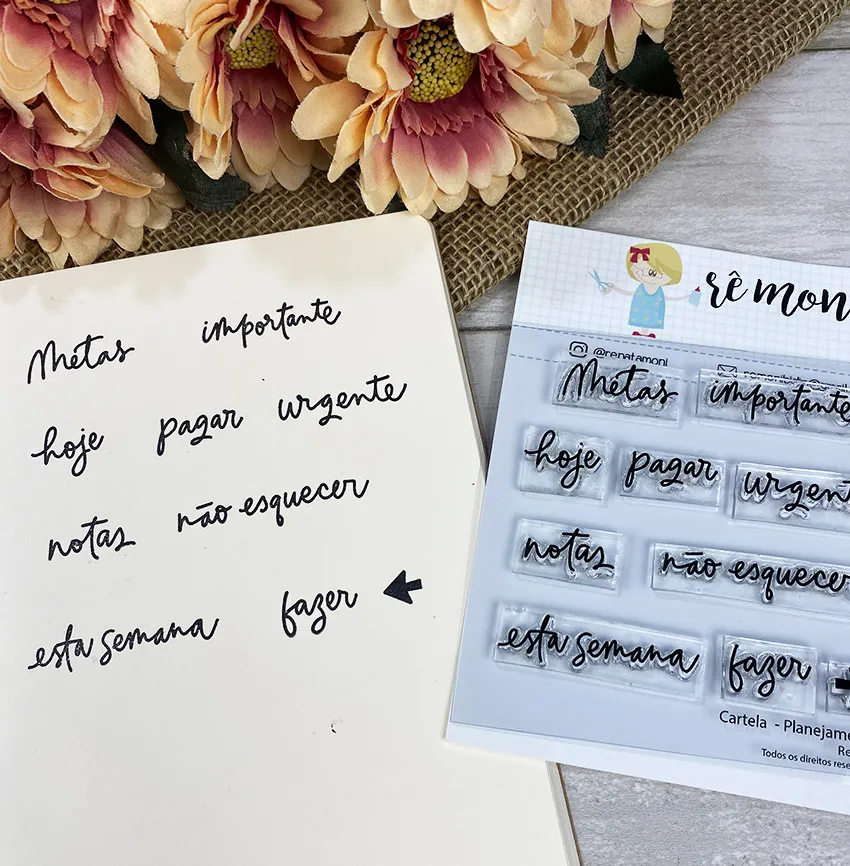 Metas importante
hoje pagar urgente
notas não esquecer
esta semana fazer
rê mon
@renatamoni
Metas importante
hoje pagar urgen
notas não esquecer
esta semana fazer
Cartela - Planejame
Re
Todos os direitos rese